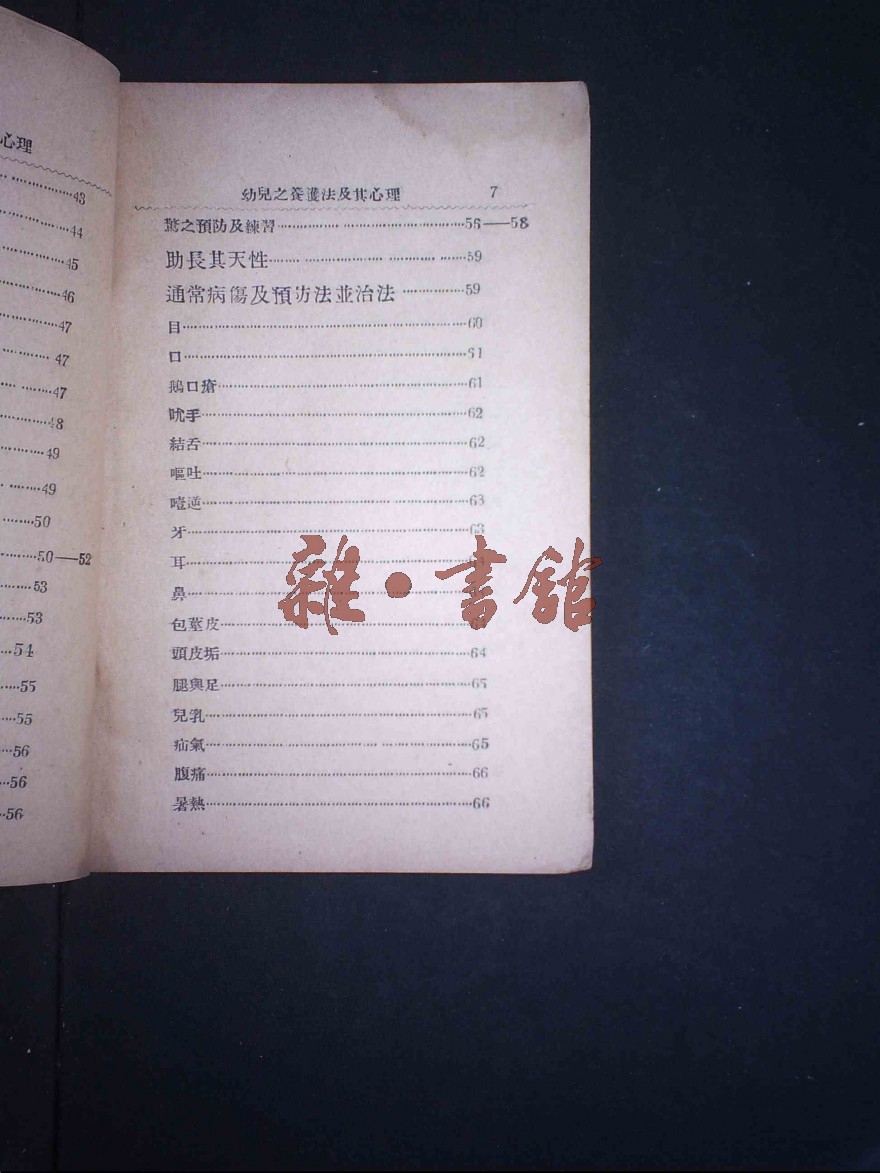 心理
43
44
45
46
47
47
47
48
49
49
50
50——52
53
53
54
55
55
56
56
56
幼兒之養護法及其心理 7
驚之預防及練習 56——58
助長其天性 59
通常病傷及預防法並治法 59
目 60
口 61
鵝口瘡 61
吮手 62
結舌 62
嘔吐 62
噎逆 63
牙 63
耳
鼻
包莖皮
頭皮垢 64
腿與足 65
兒乳 65
疝氣 65
腹痛 66
暑熱 66
雜·書館